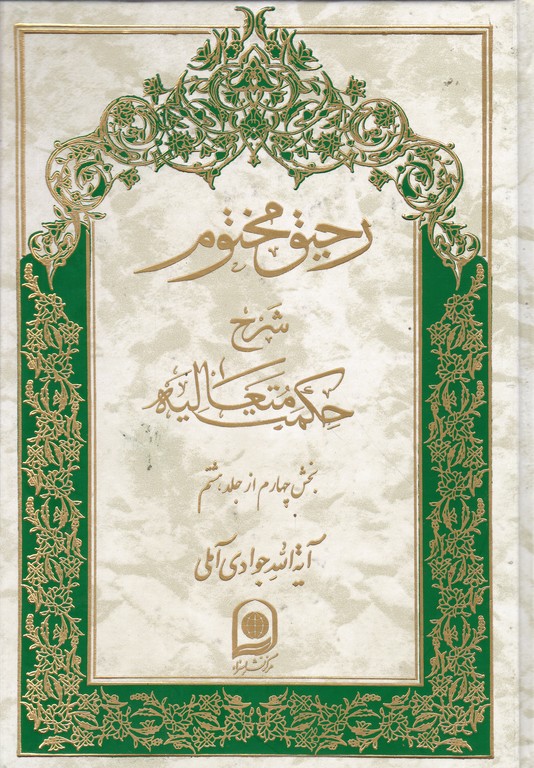 رحیق مختوم
شرح
حکمت متعالیه
بخش چهارم از جلد هشتم
آیة الله جوادی آملی
مرکز نشر اسراء